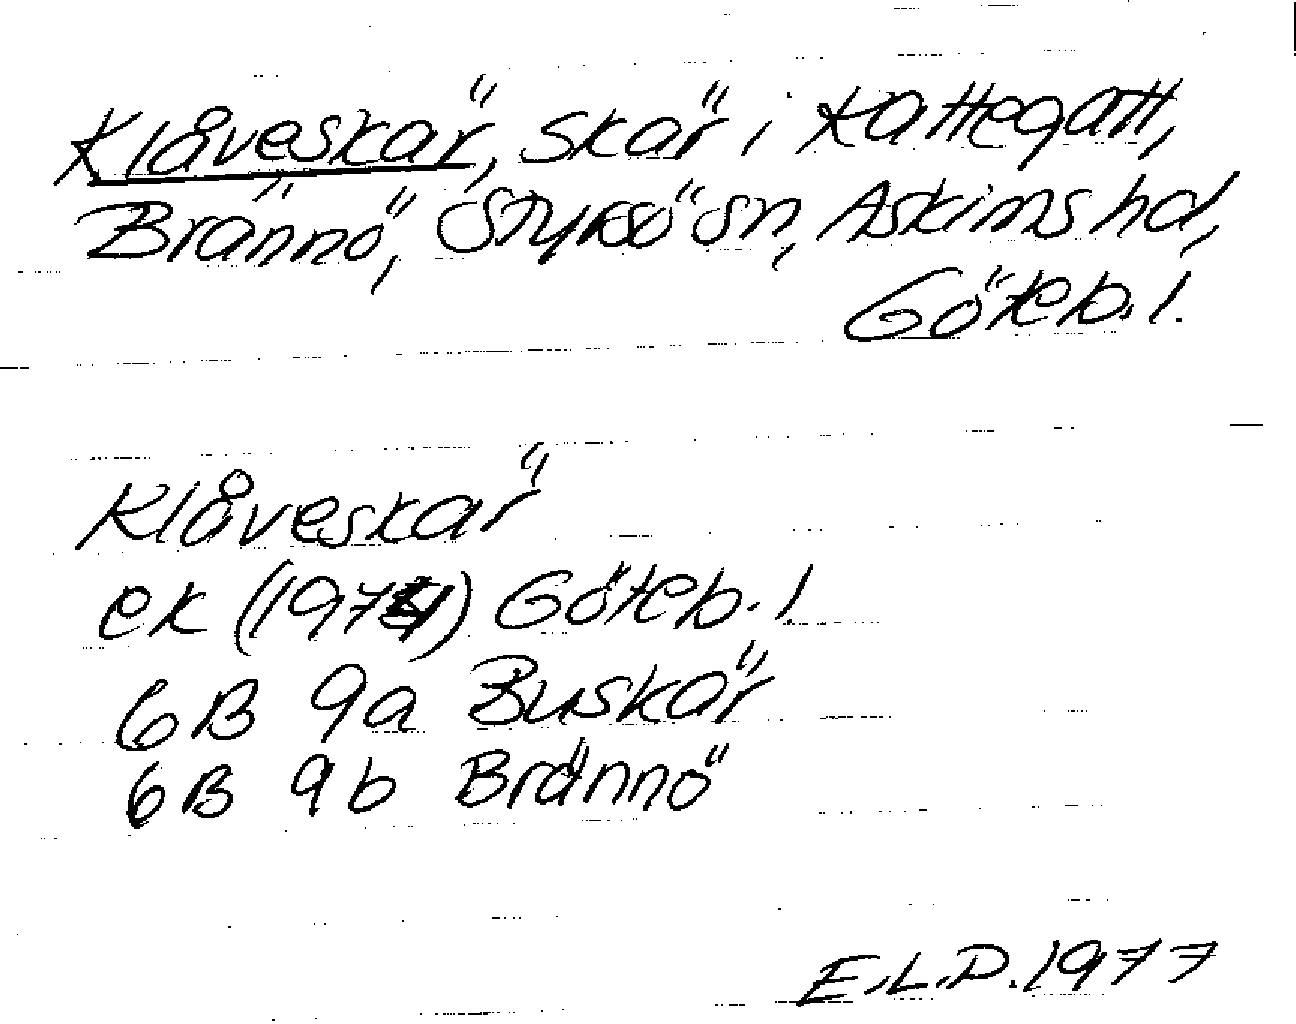 Klåveskär, skär i Kattegatt,
Brännö, Styrsö sn, Askims hd,
Göteb. l.
Klåveskär
ek (1974) Göteb. l.
6B 9a Buskär
6B 9b Brännö
E.L.D. 1977